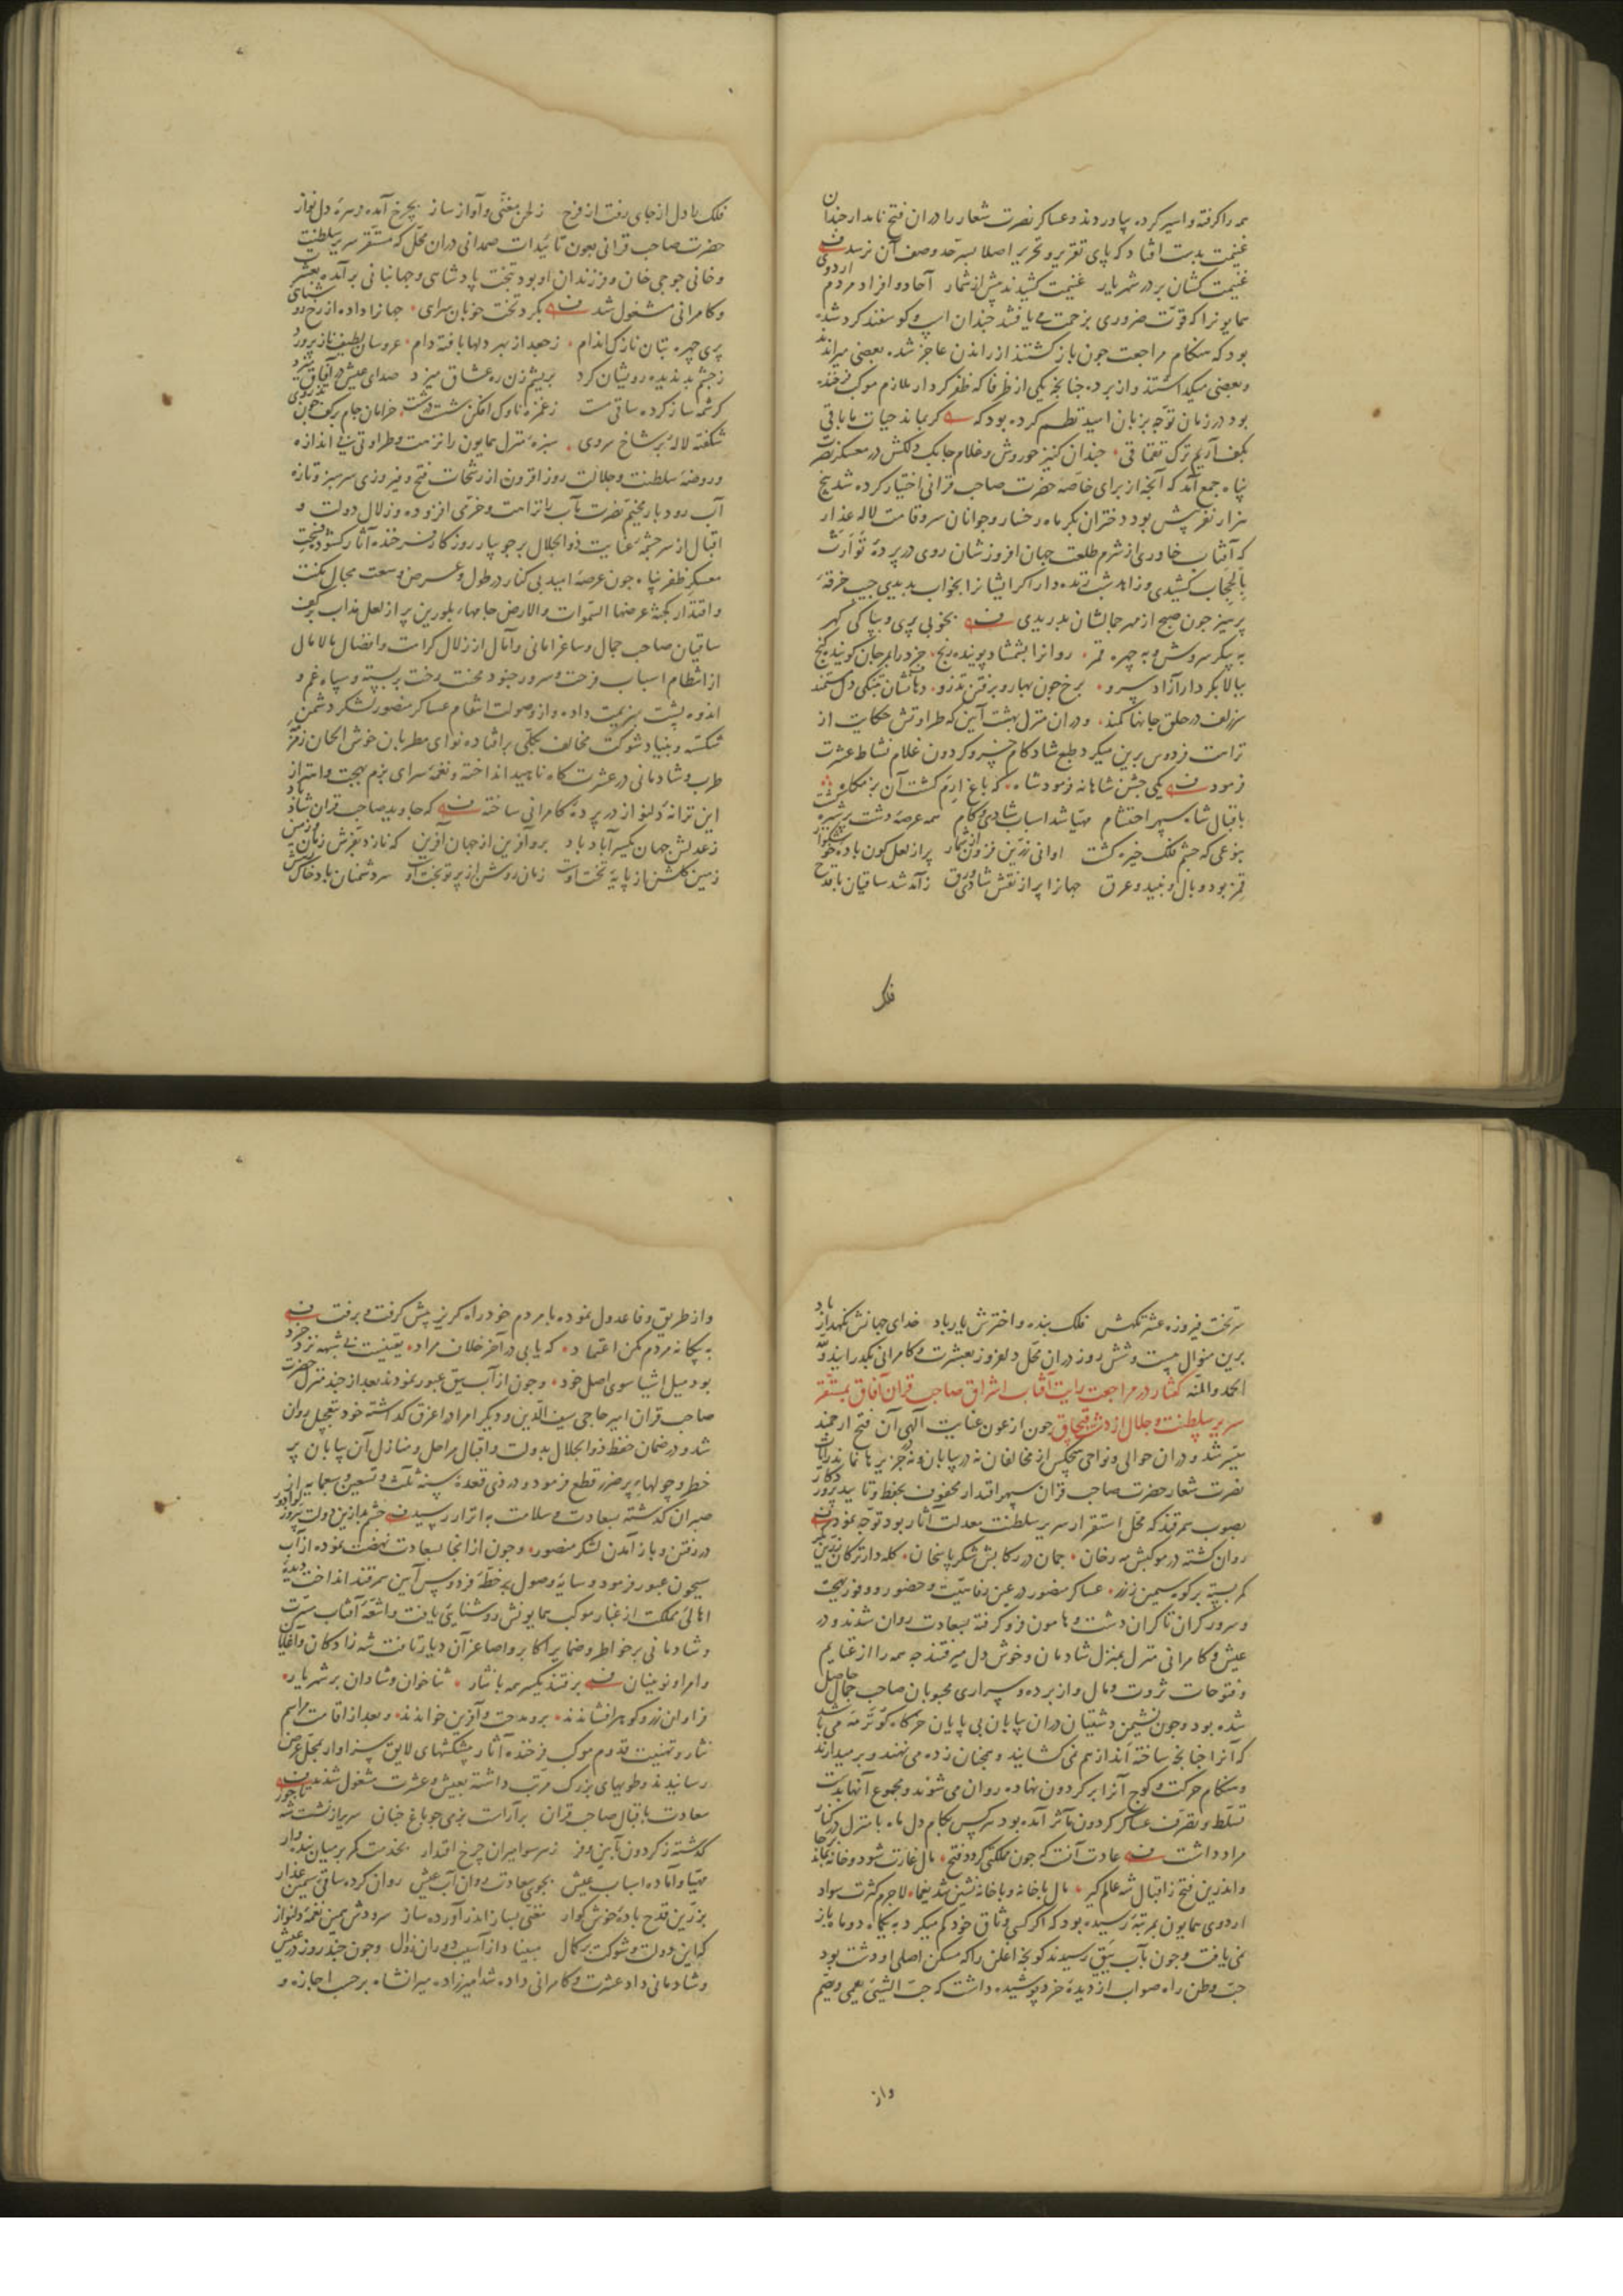 همه را گرفته و اسیر کرده بیاوردند و عساکر نصرت شعار را دران فتح نامدار چندان
غنیمت بدست افتاد که پای تقریر و تحریر اصلا بسرحد وصف آن نرسد
غنیمت کشان بر در شهریار غنیمت کشیدند بیش از شمار آحاد و افراد مردم اردوی
همایونرا که قوت ضروری بزحمت می یافتند چندان اسپ و کوسفند کرد شده
بود که هنکام مراجعت چون باز کشتند از راندن عاجز شده بعضی میراندند
و بعضی میکذاشتند و از برده چنانچه یکی از ظرفا که ظفر کردار ملازم موکب فرخنده
بود در زمان توجه بزبان امید نظم کرده بود که کر بماند حیات ما باقی
بکف آریم ترک قفچاقی چندان کنیز حوروش و غلام چابک دلکش در معسکر نصرت
پناه جمع آمد که آنچه از برای خاصه حضرت صاحب قرانی اختیار کرده شد پنج
هزار نفر بیش بود دختران بکر ماه رخسار و جوانان سرو قامت لاله عذار
که آفتاب خاوری از شرم طلعت جهان افروزشان روی در پرده توارت
بالحجاب کشیدی و زاهد شب زنده دار اکر ایشانرا بخواب بدیدی جیب خرقه
پرهیز چون صبح از مهر جمالشان بدریدی بخوبی پری و بپاکی کهر
به پیکر سروش و به چهره قمر روانرا بشمشاد پوینده رنج خرد را بمرجان کوینده کنج
ببالا بکردار آزاد سرو برخ چون بهار و برفتن تذرو دهانشان بتنکی دل مستمند
سر زلف در حلق جانها کمند و دران منزل بهشت آیین که طراوتش حکایت از
نزاهت فردوس برین میکرد طبع شاد کام خسرو کردون غلام نشاط عشرت
فرمود یکی جشن شاهانه فرمود شاه که باغ ارم کشت آن بزمکاه
باقبال شاه سپهر احتشام مهیا شد اسباب شادی و کام همه عرصه دشت پر
بنوعی که چشم فلک خیره کشت اوانی زرین فزون از شمار پر از لعل کون باده خوشکوار
قمز بود و بال و نبید و عرق جهانرا پر از نقش شادی ورق ز آمد شد ساقیان با قدح
فلک
فلک را دل از جای رفت از فرح ز لحن مغنی و آواز ساز بچرخ آمده زهره دلنواز
حضرت صاحب قرانی بعون تائیدات صمدانی دران محل که مستقر سریر سلطنت
و خانی جوجی خان و فرزندان او بود بتخت پادشاهی و جهانبانی برآمده بعشرت
و کامرانی مشغول شد بکرد تخت خوبان سرای جهانرا داده از رخ روشنای
پری چهره بتان نازک اندام ز جعد از بهر دلها بافته دام عروسان لطیف ناز پرورد
ز چشم بد ندیده رویشان کرد بریشم زن ره عشاق میزد صدای عیش در آفاق میزد
کرشمه ساز کرده ساقی مست ز غمزه ناوک افکن شست در شست خرامان جام بر کف چون تذروی
شکفته لاله بر شاخ سروی سبزه منزل همایون را نزهت و طراوتی بی اندازه
و روضه سلطنت و جلالت روز افزون از رشحات فتح و فیروزی سرسبز و تازه
آب رود بار مخیم نصرت مآب را نزاهت و خرمی افزوده و زلال دولت و
اقبال از سرچشمه عنایت ذوالجلال بر جویبار روزکار فرخنده آثار کشوده فسحت
معسکر ظفر پناه چون عرصه امید بی کنار در طول و عرض و وسعت مجال مکنت
و اقتدار کجنة عرضها السموات و الارض جامهای بلورین پر از لعل مذاب بر کف
ساقیان صاحب جمال و ساغر امانی و آمال از زلال کرامت و افضال مالامال
از انتظام اسباب فرحت و سرور جنود محنت رخت بربسته و سپاه غم و
اندوه پشت بهزیمت داده و از صولت انتقام عساکر منصور لشکر دشمن
شکسته و بنیاد شوکت مخالف بکلی برافتاده نوای مطربان خوش الحان زمزمه
طرب و شادمانی در عشرت کاه ناهید انداخته و نغمه سرای بزم بهجت و اهتزاز
این ترانه دلنواز در پرده کامرانی ساخته که جاوید صاحب قران شاد باد
ز عدلش جهان یکسر آباد باد برو آفرین از جهان آفرین که نازد بفرش زمان و زمین
زمین کلشن از پایه تخت اوست زمان روشن از پرتو بخت او سر دشمنان باد خاک رهش
سر تخت فیروزه عشرتکهش فلک بنده و اخترش یار باد خدای جهانش نکهدار باد
برین منوال بیست و شش روز دران محل دلفروز بعشرت و کامرانی بکذرانید و لله
الحمد و المنه کفتار در مراجعت رایت آفتاب اشراق صاحب قران آفاق بمستقر
سریر سلطنت و جلال از دشت قبچاق چون از عون عنایت الهی آن فتح ارجمند
میسر شد و دران حوالی و نواحی هیچکس از مخالفان نه در بیابان و نه در جزیرها نماند رایت
نصرت شعار حضرت صاحب قران سپهر اقتدار محفوف بحفظ و تایید پروردکار
بصوب سمرقند که محل استقرار سریر سلطنت معدلت آثار بود توجه نمود
روان کشته در موکبش مه رخان چمان در رکابش شکر پاسخان کله دار ترکان زرین کمر
کمر بسته بر کوه سیمین ز زر عساکر منصور در عین رفاهیت و حضور و وفور بهجت
و سرور کران تا کران دشت و هامون فرو کرفته بسعادت روان شدند و در
عیش و کامرانی منزل بمنزل شادمان و خوش دل میرفتند چه همه را از غنایم
و فتوحات ثروت و مال و از برده و سراری محبوبان صاحب جمال حاصل
شده بود و چون نشیمن دشتیان دران بیابان بی پایان خرکاه کوترمه می باشد
که آنرا چنانچه ساخته اند از هم نمی کشایند و همچنان زده می نهند و برمیدارند
و هنکام حرکت و کوچ آنرا بر کردون نهاده روان می شوند و مجموع آنها بدست
تسلط و تصرف عساکر کردون مآثر آمده بود هر کس بکام دل ماه با منزل در کنار
مراد داشت عادت آنست که چون مملکتی کردد فتح مال غارت شود و خانه بماند بر جا
و اندرین فتح ز اقبال شه عالم کیر مال با خانه و با خانه نشین شد یغما لاجرم کثرت سواد
اردوی همایون بمرتبه رسیده بود که اکر کسی وثاق خود کم میکرد به یکماه دو ماه باز
نمی یافت و چون بآب ییق رسیدند کونجه اغلن را که مسکن اصلی او دشت بود
حب وطن راه صواب از دیده خرد پوشیده داشت که حب الشیئ یعمی و یصم
و از
و از طریق وفا عدول نموده با مردم خود راه کریز پیش کرفت و برفت
به بیکانه مردم مکن اعتماد که یابی در آخر خلاف مراد یقینست بی شبهه نزد خرد
بود میل اشیا سوی اصل خود و چون از آب ییق عبور نمودند بعد از چند منزل حضرت
صاحب قران امیر حاجی سیف الدین و دیکر امرا در اغرق کذاشته خود بتعجیل روان
شد و در ضمان حفظ ذوالجلال بدولت و اقبال مراحل و منازل آن بیابان پر
خطر و چولهای پر ضرر قطع فرمود و در ذی قعده سنه ثلث و تسعین و سبعمایه از
صبران کذشته بسعادت و سلامت به اترار رسید چشم بد ازین دولت پیروز دور
در رفتن و باز آمدن لشکر منصور و چون از انجا بسعادت نهضت نموده از آب
سیحون عبور فرمود و سایه وصول بر خطه فردوس آیین سمرقند انداخت دیده
اهالی مملکت از غبار موکب همایونش روشنایی یافت و اشعه آفتاب مسرت
و شادمانی بر خواطر و ضمایر اکابر و اصاغر آن دیار تافت شه زادکان و آغایان
و امرا و نوینان برفتند یکسر همه با نثار ثنا خوان و شادان بر شهریار
فراوان زر و کوهر افشاندند برو مدحت و آفرین خواندند و بعد از اقامت مراسم
نثار و تهنیت قدوم موکب فرخنده آثار پیشکشهای لایق سزاوار بمحل عرض
رسانیدند و طویهای بزرک مرتب داشته بعیش و عشرت مشغول شدند
سعادت باقبال صاحب قران برآراست بزمی چو باغ جنان سریر از نشست شه تاجور
کذشته ز کردون بآیین و فر ز هر سو امیران چرخ اقتدار بخدمت کمر بر میان بنده وار
مهیا و آماده اسباب عیش بجوی سعادت روان آب عیش روان کرده ساقی سیمین عذار
بزرین قدح باده خوش کوار مغنی بساز اندر آورده ساز سرودش همین نغمه دلنواز
که این دولت و شوکت بر کمال مبیناد از آسیب دوران زوال و چون چند روز در عیش
و شادمانی داد عشرت و کامرانی داده شد امیرزاده میرانشاه بر حسب اجازه و